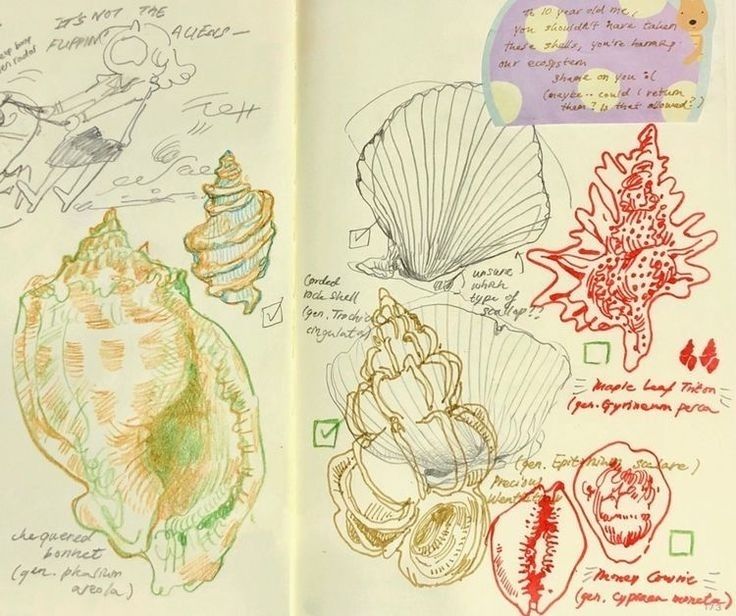 IT'S NOT THE
FLIPPIN' ALIENS—
To 10 year old me,
you shouldn't have taken
these shells, you're harming
our ecosystem
Shame on you :(
(maybe.. could I return
them? Is that allowed?)
unsure
which
type of
scallop??
Corded
rock shell
(gen. Trochia
cingulata)
Maple Leaf Triton
(gen. Gyrineum perca
(gen. Epitonium scalare)
Precious
Wentletrap
chequered
bonnet
(gen. phalium
areola)
Money Cowrie
(gen. cypraea moneta)